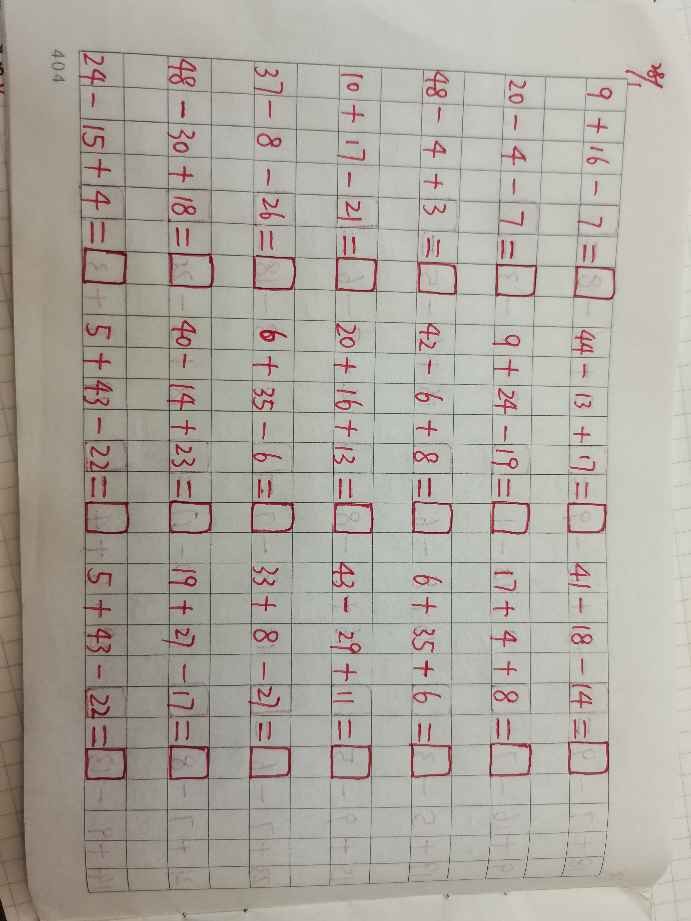 28/1
9 + 16 - 7 = □ 44 - 13 + 17 = □ 41 - 18 - 14 = □
20 - 4 - 7 = □ 9 + 24 - 19 = □ 17 + 4 + 8 = □
48 - 4 + 3 = □ 42 - 6 + 8 = □ 6 + 35 + 6 = □
10 + 17 - 21 = □ 20 + 16 + 13 = □ 43 - 29 + 11 = □
37 - 8 - 26 = □ 6 + 35 - 6 = □ 33 + 8 - 27 = □
48 - 30 + 18 = □ 40 - 14 + 23 = □ 19 + 27 - 17 = □
24 - 15 + 4 = □ 5 + 43 - 22 = □ 5 + 43 - 22 = □
404